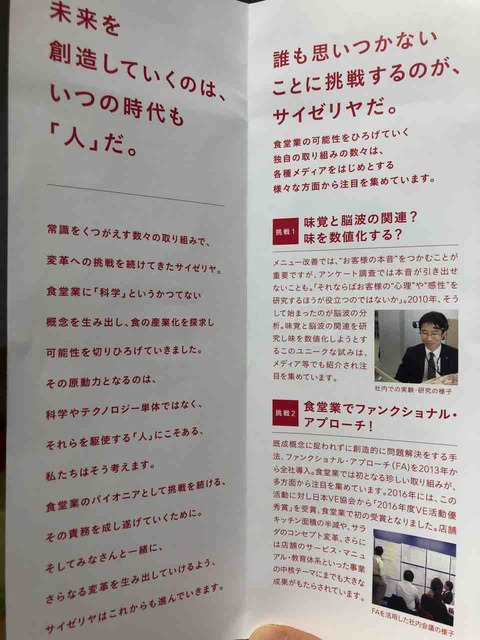 未来を
創造していくのは、
いつの時代も
「人」だ。
常識をくつがえす数々の取り組みで、
変革への挑戦を続けてきたサイゼリヤ。
食堂業に「科学」というかつてない
概念を生み出し、食の産業化を探求し
可能性を切りひろげていきました。
その原動力となるのは、
科学やテクノロジー単体ではなく、
それらを駆使する「人」にこそある、
私たちはそう考えます。
食堂業のパイオニアとして挑戦を続ける、
その責務を成し遂げていくために。
そしてみなさんと一緒に、
さらなる変革を生み出していけるよう、
サイゼリヤはこれからも進んでいきます。
誰も思いつかない
ことに挑戦するのが、
サイゼリヤだ。
食堂業の可能性をひろげていく
独自の取り組みの数々は、
各種メディアをはじめとする
様々な方面から注目を集めています。
挑戦1 味覚と脳波の関連？
味を数値化する？
メニュー改善では、“お客様の本音”をつかむことが
重要ですが、アンケート調査では本音が引き出せ
ないことも。「それならばお客様の“心理”や“感性”を
研究するほうが役立つのではないか」。2010年、そう
して始まったのが脳波の分
析。味覚と脳波の関連を研
究し味を数値化しようとす
るこのユニークな試みは、
メディア等でも紹介され注
目を集めています。
社内での実験・研究の様子
挑戦2 食堂業でファンクショナル・
アプローチ！
既成概念に捉われずに創造的に問題解決をする手
法、ファンクショナル・アプローチ（FA）を2013年か
ら全社導入。食堂業では初となる珍しい取り組みが、
多方面から注目を集めています。2016年には、この
活動に対し日本VE協会から「2016年度VE活動優
秀賞」を受賞、食堂業で初の受賞となりました。店舗
キッチン面積の半減や、サラ
ダのコンセプト変革、さらに
は店舗のサービス・マニュ
アル・教育体系といった事業
の中核テーマにまでも大きな
成果がもたらされています。
FAを活用した社内会議の様子